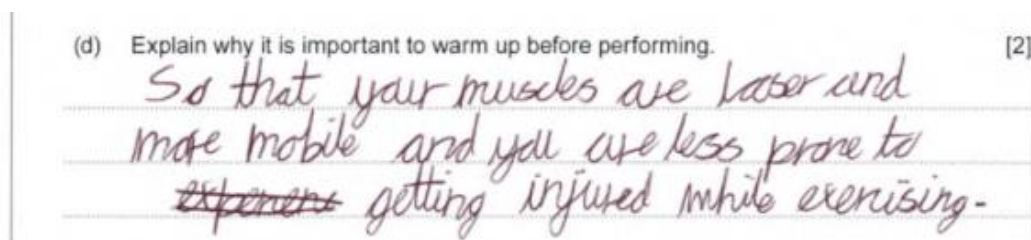 (d) Explain why it is important to warm up before performing. [2]
So that your muscles are looser and
more mobile and you are less prone to
getting injured while exercising.